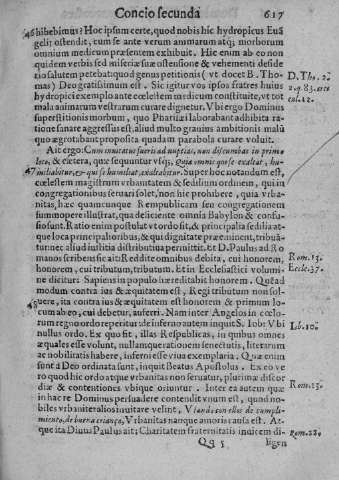 Concio secunda 617
46 hibebimus? Hoc ipsum certe, quod nobis hic hydropicus Euã
gelij ostendit, cum se ante verum animarum atq; morborum
omnium medicum præsentem exhibuit. Hic enim ab eo non
quidem verbis sed miseriæ suæ ostensione & vehementi deside
rio salutem petebat: quod genus petitionis (vt docet B. Tho-
mas) Deo gratissimum est. Sic igitur vos ipsos fratres huius
hydropici exemplo ante cœlestem medicum constituite, vt tot
mala animarum vestrarum curare dignetur. Vbi ergo Dominus
superstitionis morbum, quo Pharisæi laborabant adhibita ra-
tione sanare aggressus est, aliud multo grauius ambitionis malũ
quo ægrotabant proposita quadam parabola curare voluit.
D. Tho. 2ª
2. q. 83. art.
col. 12.
Ait ergo: Cum inuitatus fueris ad nuptias, non discumbas in primo
loco, & cætera, quæ sequuntur vsq;, Quia omnis qui se exaltat, hu-
47 miliabitur, & qui se humiliat, exaltabitur. Super hoc notandum est,
cœlestem magistrum vrbanitatem & sedilium ordinem, qui in
congregationibus seruari solet, non hic prohibere, quia vrba-
nitas, hæc quamcunque Rempublicam seu congregationem
summopere illustrat, qua deliciente omnia Babylon & confu-
sio sunt. Ratio enim postulat vt ordo sit, & principalia sedilia at-
que loca principalioribus, & qui dignitate præeminent, tribuã-
tur: nec aliud iustitia distributiua permittit. et D. Paulus ad Ro
manos scribens sic ait: Reddite omnibus debita, cui honorem,
honorem, cui tributum, tributum. Et in Ecclesiastici volumi-
ne dicitur: Sapiens in populo hæreditabit honorem. Quéad
modum contra ius & æquitatem est, Regi tributum non sol-
48 uere, ita contra ius & æquitatem est honorem & primum lo-
cum ab eo, cui debetur, auferri. Nam inter Angelos in cœlo-
rum regno ordo reperitur de inferno autem inquit S. Iob: V bi
nullus ordo. Ex quo fit, illas Respublicas, in quibus omnes
æquales esse volunt, nullamque rationem senectutis, literarum
ac nobilitatis habere, inferni esse viua exemplaria. Quæ enim
sunt a Deo ordinata sunt, inquit Beatus Apostolus. Ex eo ve
ro quod hic ordo atque vrbanitas non seruatur, plurimæ discor
diæ & contentiones vbique oriuntur. Inter ea autem quæ
in hac re Dominus persuadere contendit vnum est, quod no-
biles vrbani te alios inuitare velint, Vsando con ellos de cumpli-
miento, de buena criança, Vrbanitas nanque amoris causa est. At-
que ita Diuus Paulus ait: Charitatem fraternitatis inuicem di-
Rom. 13.
Eccle. 37.
Iob. 10.
Rom. 13.
Rom. 12.
Qq 5 ligen